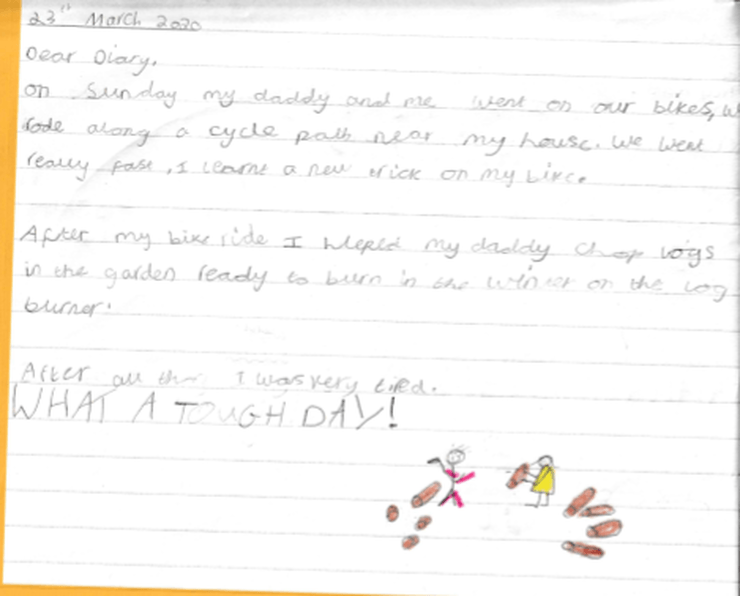 23th March 2020
Dear Diary,
on Sunday my daddy and me went on our bikes, w
rode along a cycle path near my house. We went
really fast, I learnt a new trick on my bike.
After my bike ride I hleped my daddy chop logs
in the garden ready to burn in the winter on the log
burner.
After all that I was very tired.
WHAT A TOUGH DAY!